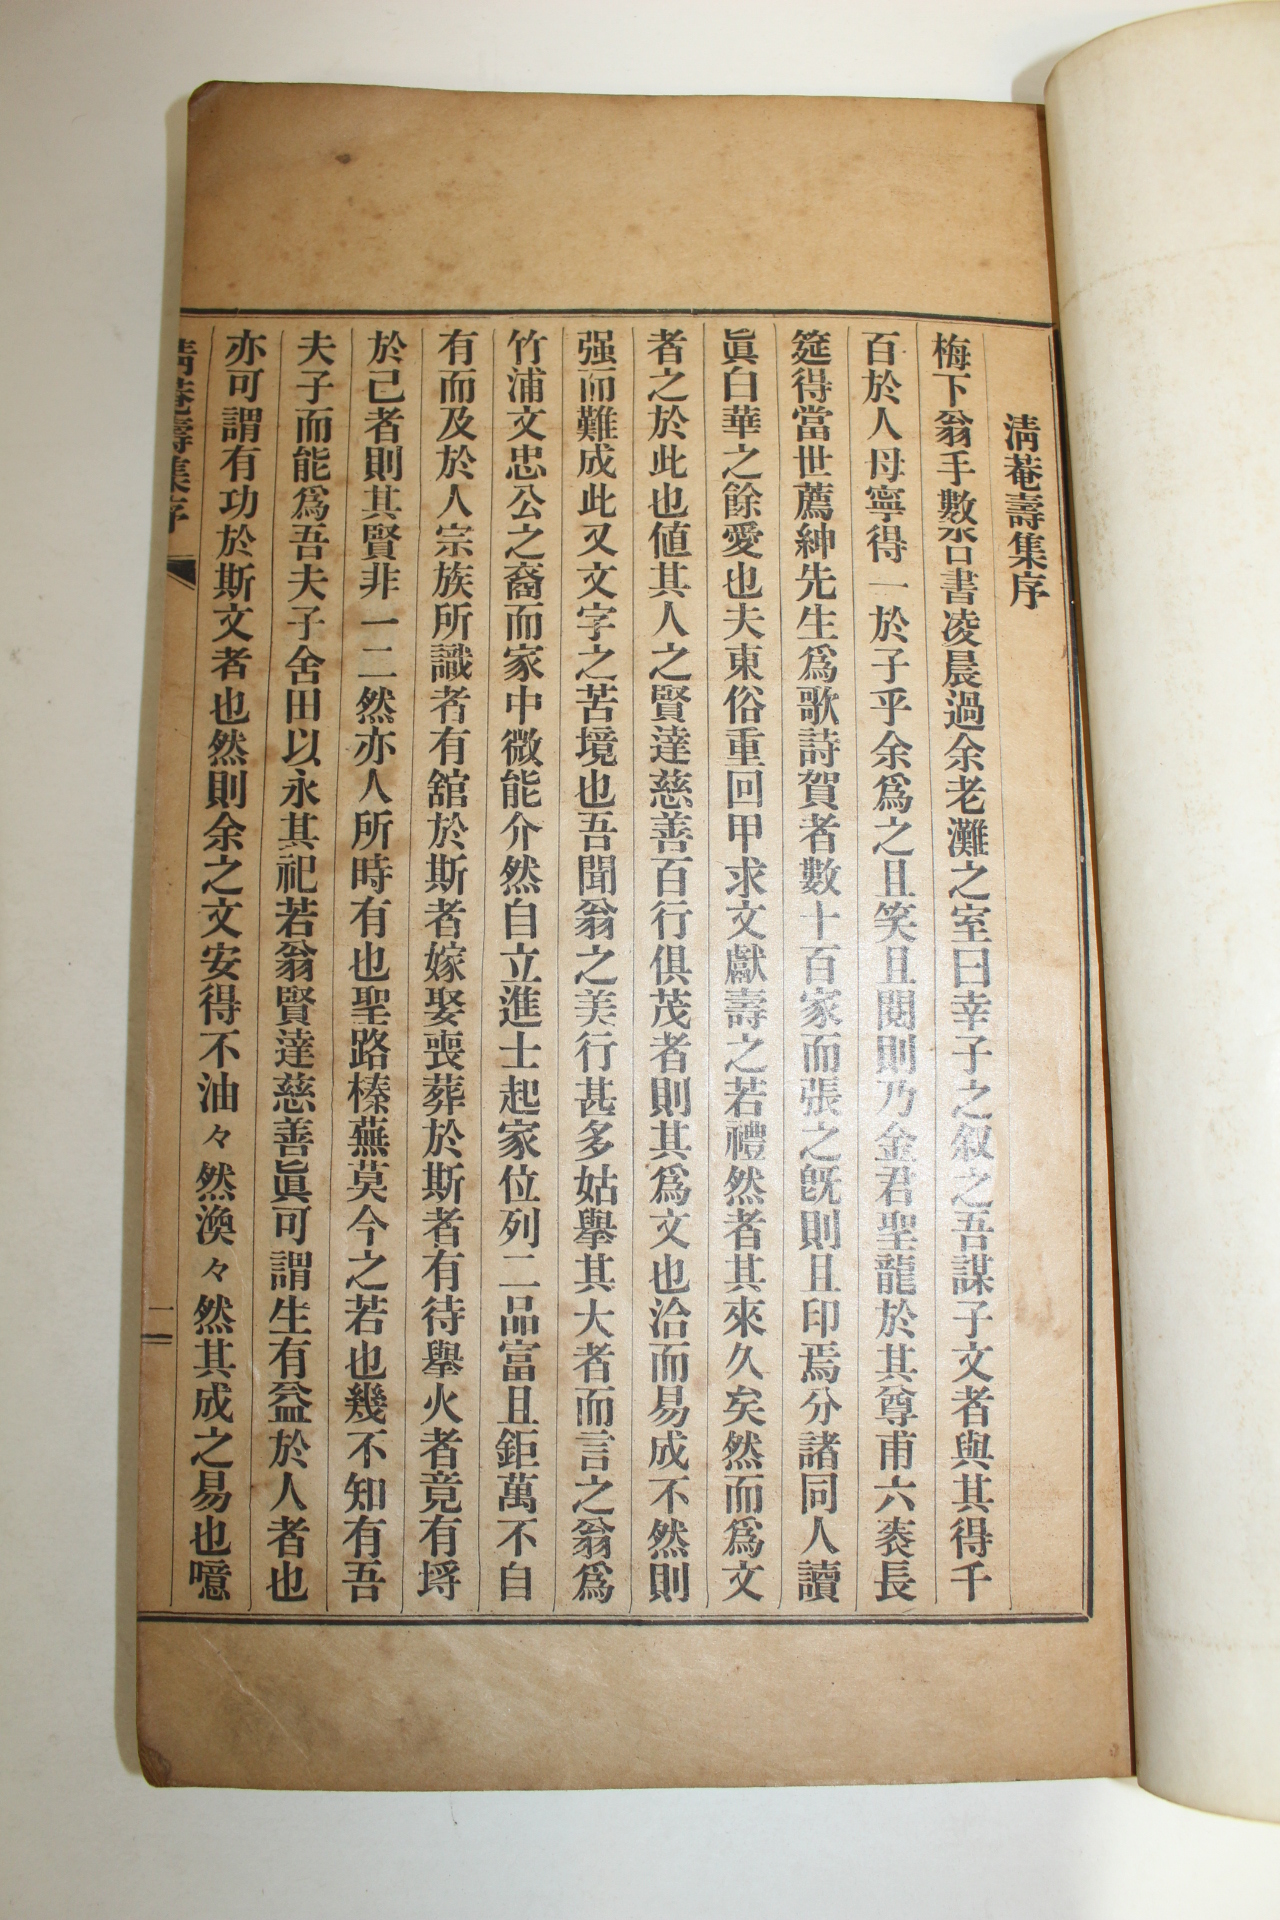 淸菴壽集序
梅下翁手數沓書凌晨過余老灘之室曰幸子之叙之吾謀子文者與其得千
百於人毋寧得一於子乎余爲之且笑且閱則乃金君聖龍於其尊甫六袠長
筵得當世薦紳先生爲歌詩賀者數十百家而張之旣則且印焉分諸同人讀
眞白華之餘愛也夫東俗重回甲求文獻壽之若禮然者其來久矣然而爲文
者之於此也値其人之賢達慈善百行俱茂者則其爲文也洽而易成不然則
强而難成此又文字之苦境也吾聞翁之美行甚多姑擧其大者而言之翁爲
竹浦文忠公之裔而家中微能介然自立進士起家位列二品富且鉅萬不自
有而及於人宗族所識者有舘於斯者嫁娶喪葬於斯者有待擧火者竟有埒
於己者則其賢非一二然亦人所時有也聖路榛蕪莫今之若也幾不知有吾
夫子而能爲吾夫子舍田以永其祀若翁賢達慈善眞可謂生有益於人者也
亦可謂有功於斯文者也然則余之文安得不油々然渙々然其成之易也噫
淸菴壽集序
一